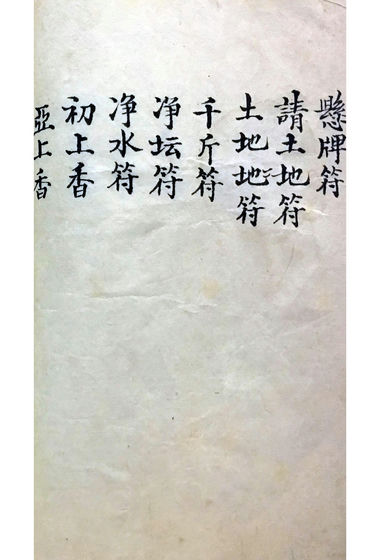 懸牌符
請土地符
土地地符
千斤符
净坛符
净水符
初上香
亞上香